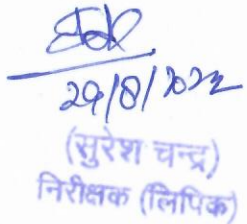 29/8/2022
(सुरेश चन्द्र)
निरीक्षक (लिपिक)